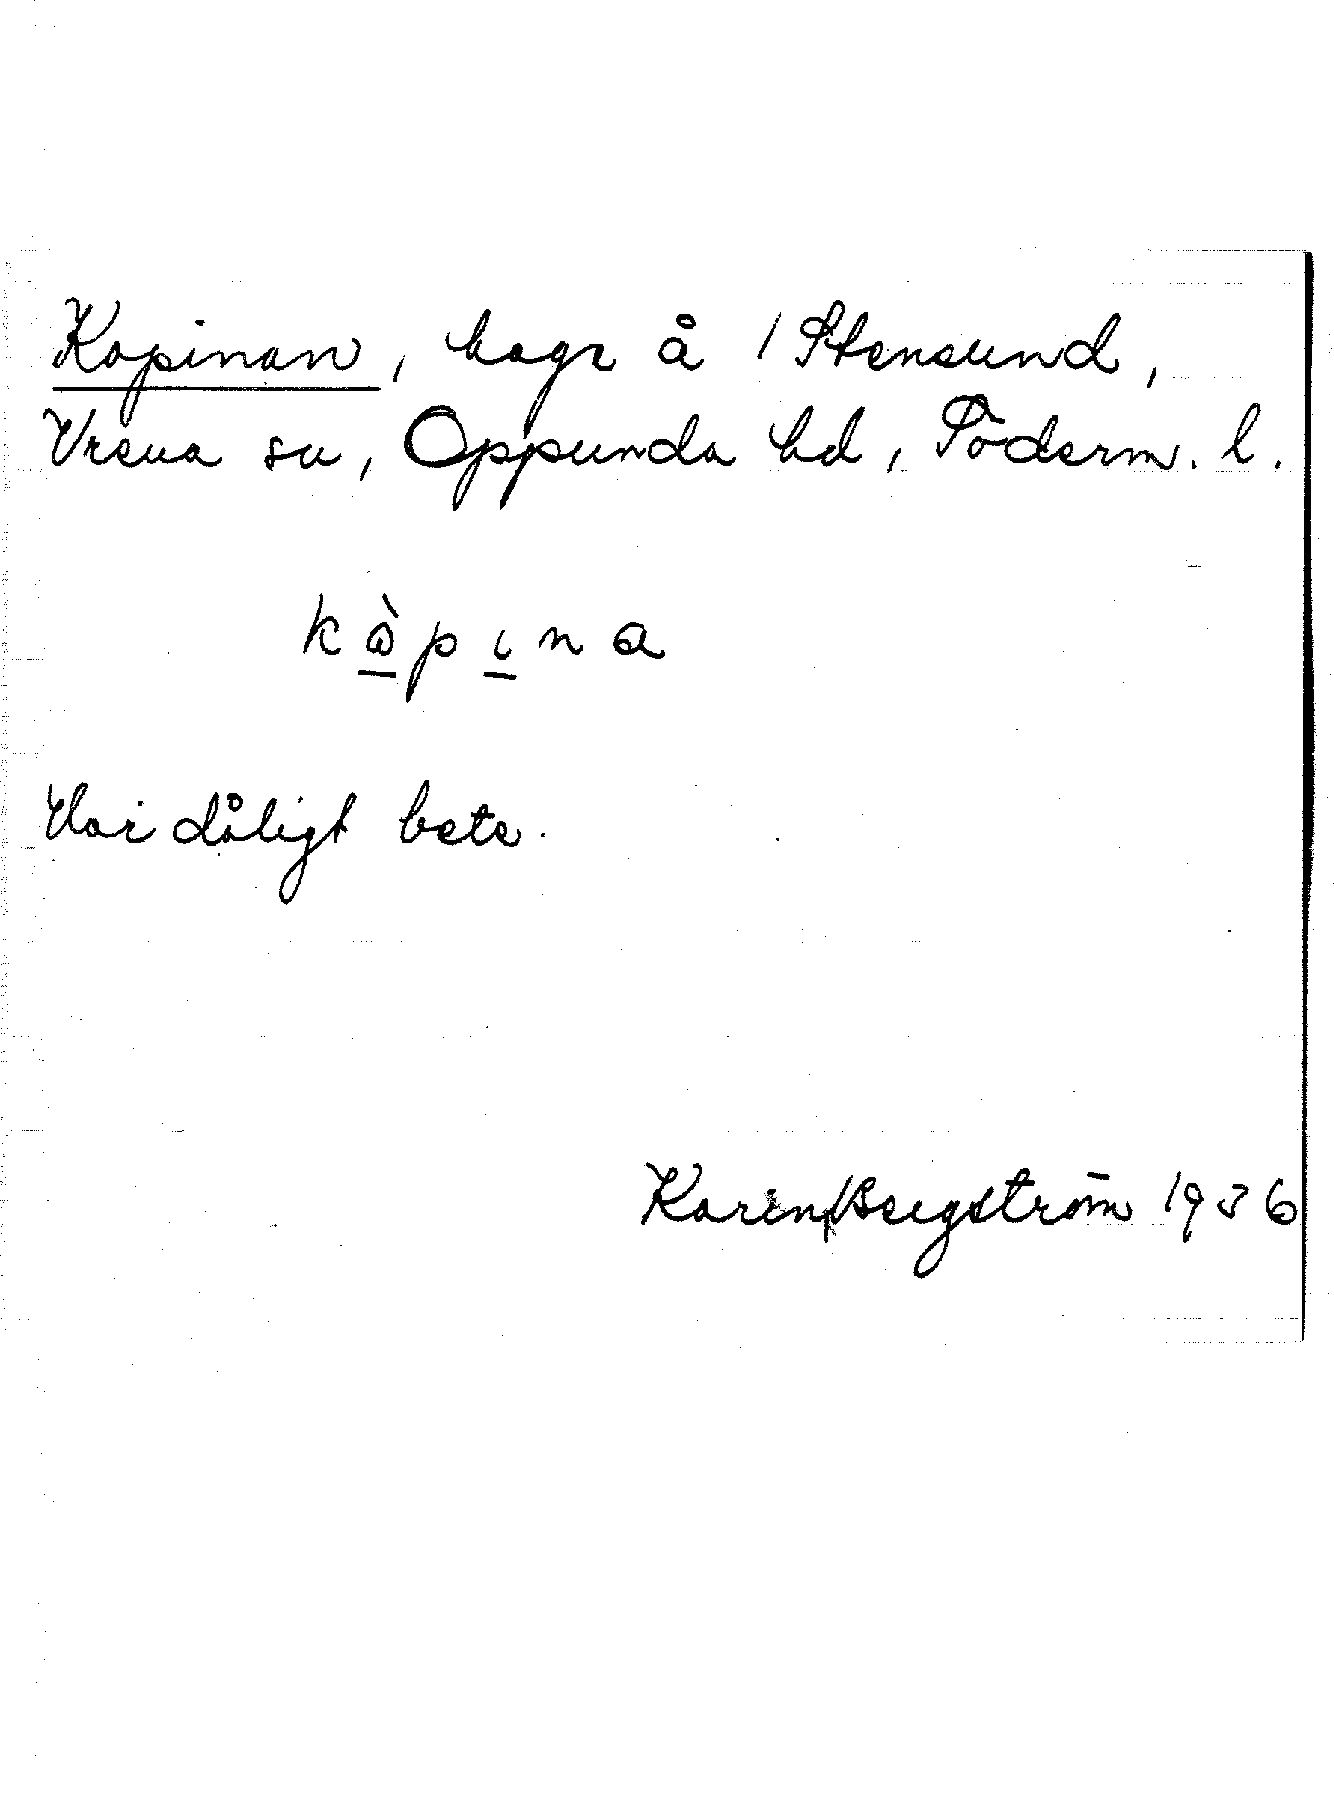 Kopinan, hage å 1 Stensund,
Vrena sn, Oppunda hd, Söderm. l.
kòpına
Var dåligt bete.
Karin Bergström 1936